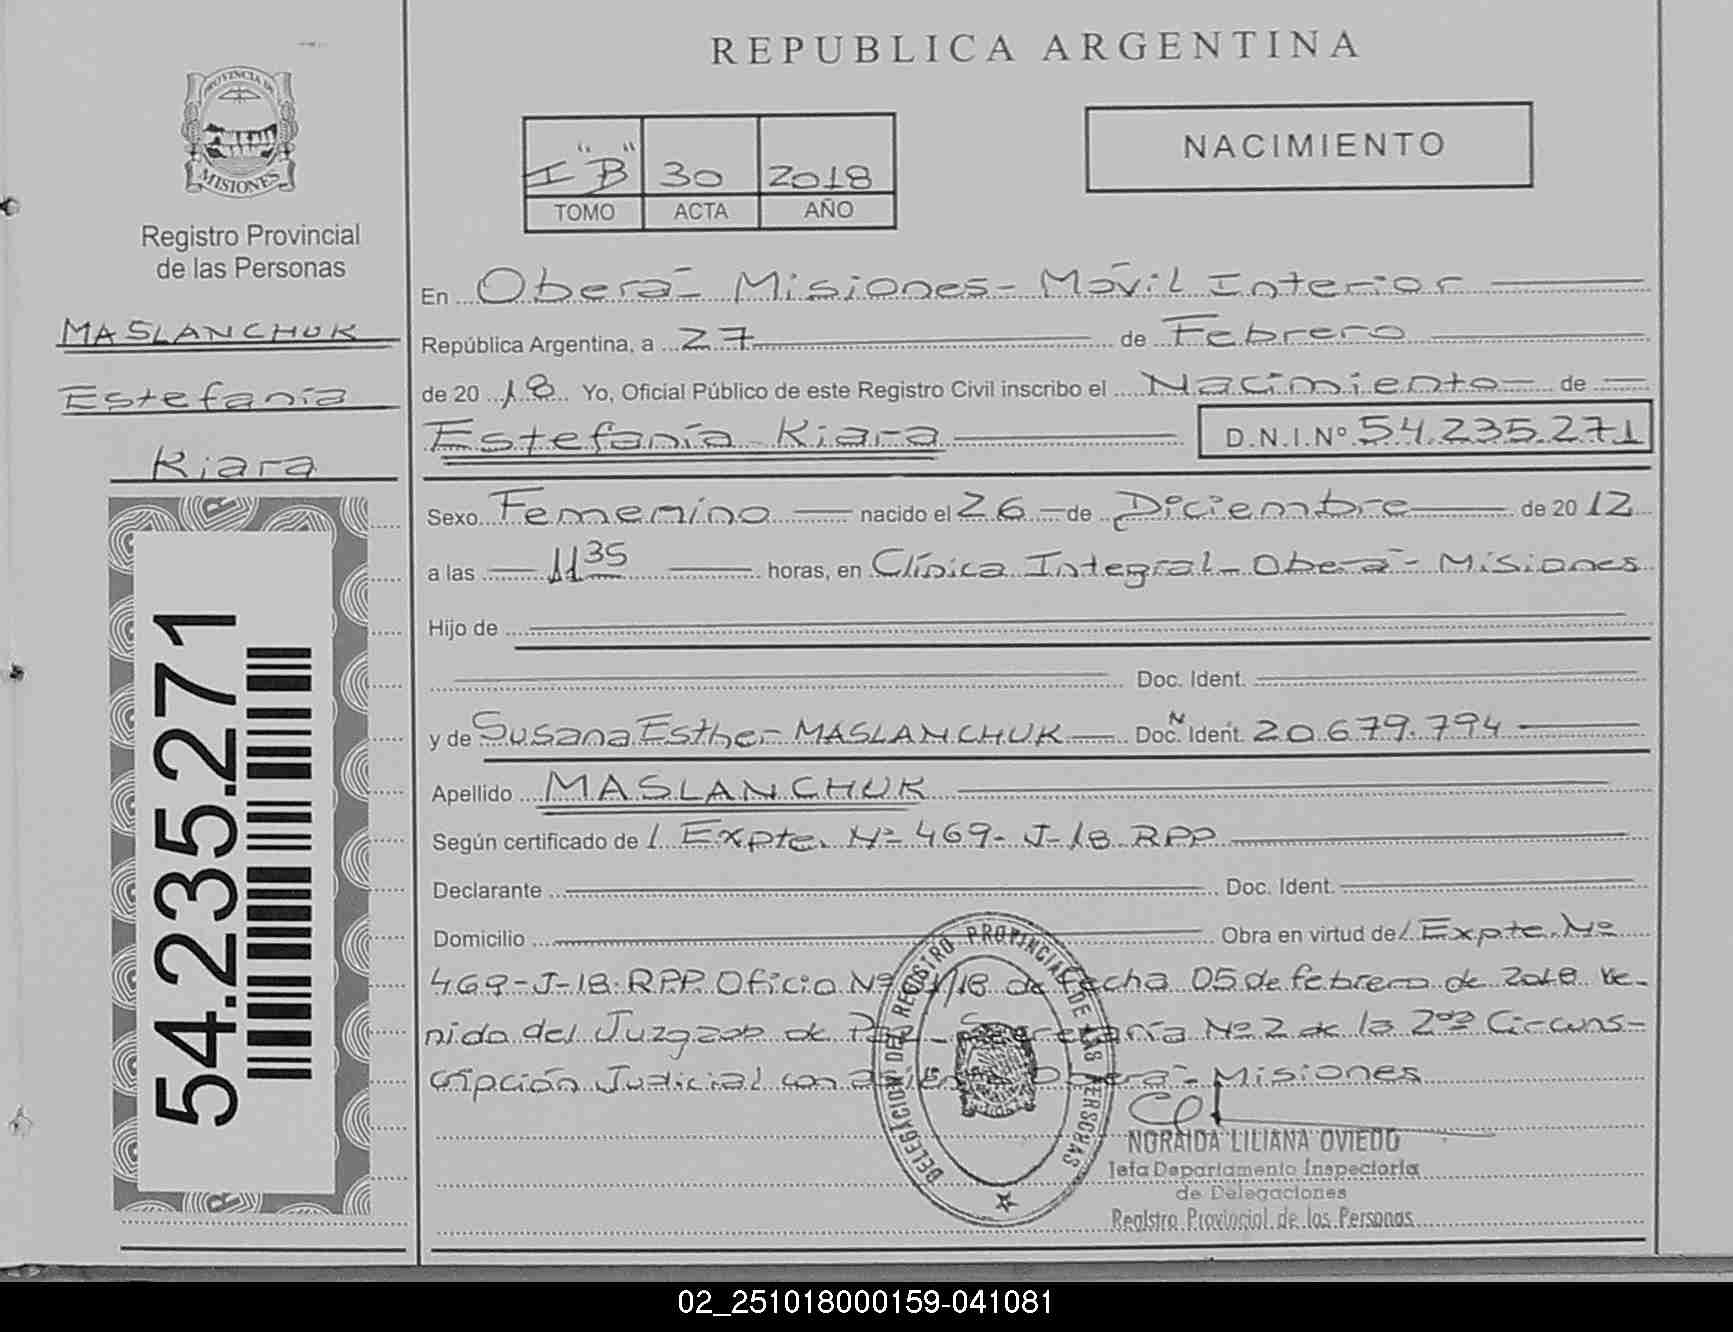 REPUBLICA ARGENTINA
PROVINCIA DE
MISIONES
Registro Provincial
de las Personas
I "B" 30 2018
TOMO ACTA AÑO
NACIMIENTO
MASLANCHUK
Estefanía
Kiara
54.235.271
En Oberá - Misiones - Móvil Interior
República Argentina, a 27 de Febrero
de 20 18 Yo, Oficial Público de este Registro Civil inscribo el Nacimiento de
Estefanía Kiara D.N.I.Nº 54.235.271
Sexo Femenino nacido el 26 de Diciembre de 20 12
a las 11 35 horas, en Clínica Integral - Oberá - Misiones
Hijo de
Doc. Ident.
y de Susana Esther MASLANCHUK Doc. N Ident. 20.679.794
Apellido MASLANCHUK
Según certificado de / Expte. Nº 469-J-18 RPP
Declarante Doc. Ident.
Domicilio Obra en virtud de / Expte. Nº
469-J-18 RPP. Oficio Nº /18 de fecha 05 de febrero de 2018 ve-
nido del Juzgado de Paz - Secretaría Nº 2 de la 2da Circuns-
cripción Judicial con asiento Oberá - Misiones
DELEGACION DEL REGISTRO PROVINCIAL DE LAS PERSONAS
NORAIDA LILIANA OVIEDO
Jefa Departamento Inspectoría
de Delegaciones
Registro Provincial de las Personas
02_251018000159-041081